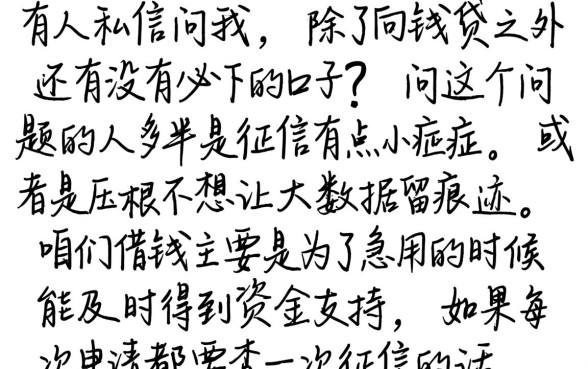 有人私信问我，除了向钱贷之外
还有没有必下的口子？问这个问
题的人多半是征信有点小症症。或
者是压根不想让大数据留痕迹。
咱们借钱主要是为了急用的时候
能及时得到资金支持，如果每
次申请都要查一次征信的话